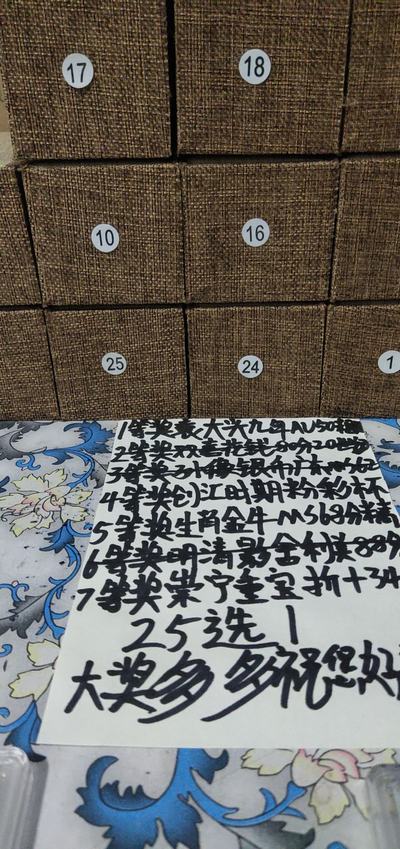 17
18
10
16
25
24
1
1等奖袁大头九年AU50
2等奖双花钱80分
3等奖银币广东MS62
4等奖时期粉彩杯
5等奖生肖金牛MS68分精
6等奖明清金利88分
7等奖崇宁重宝折十
25选1
大奖多多祝您好